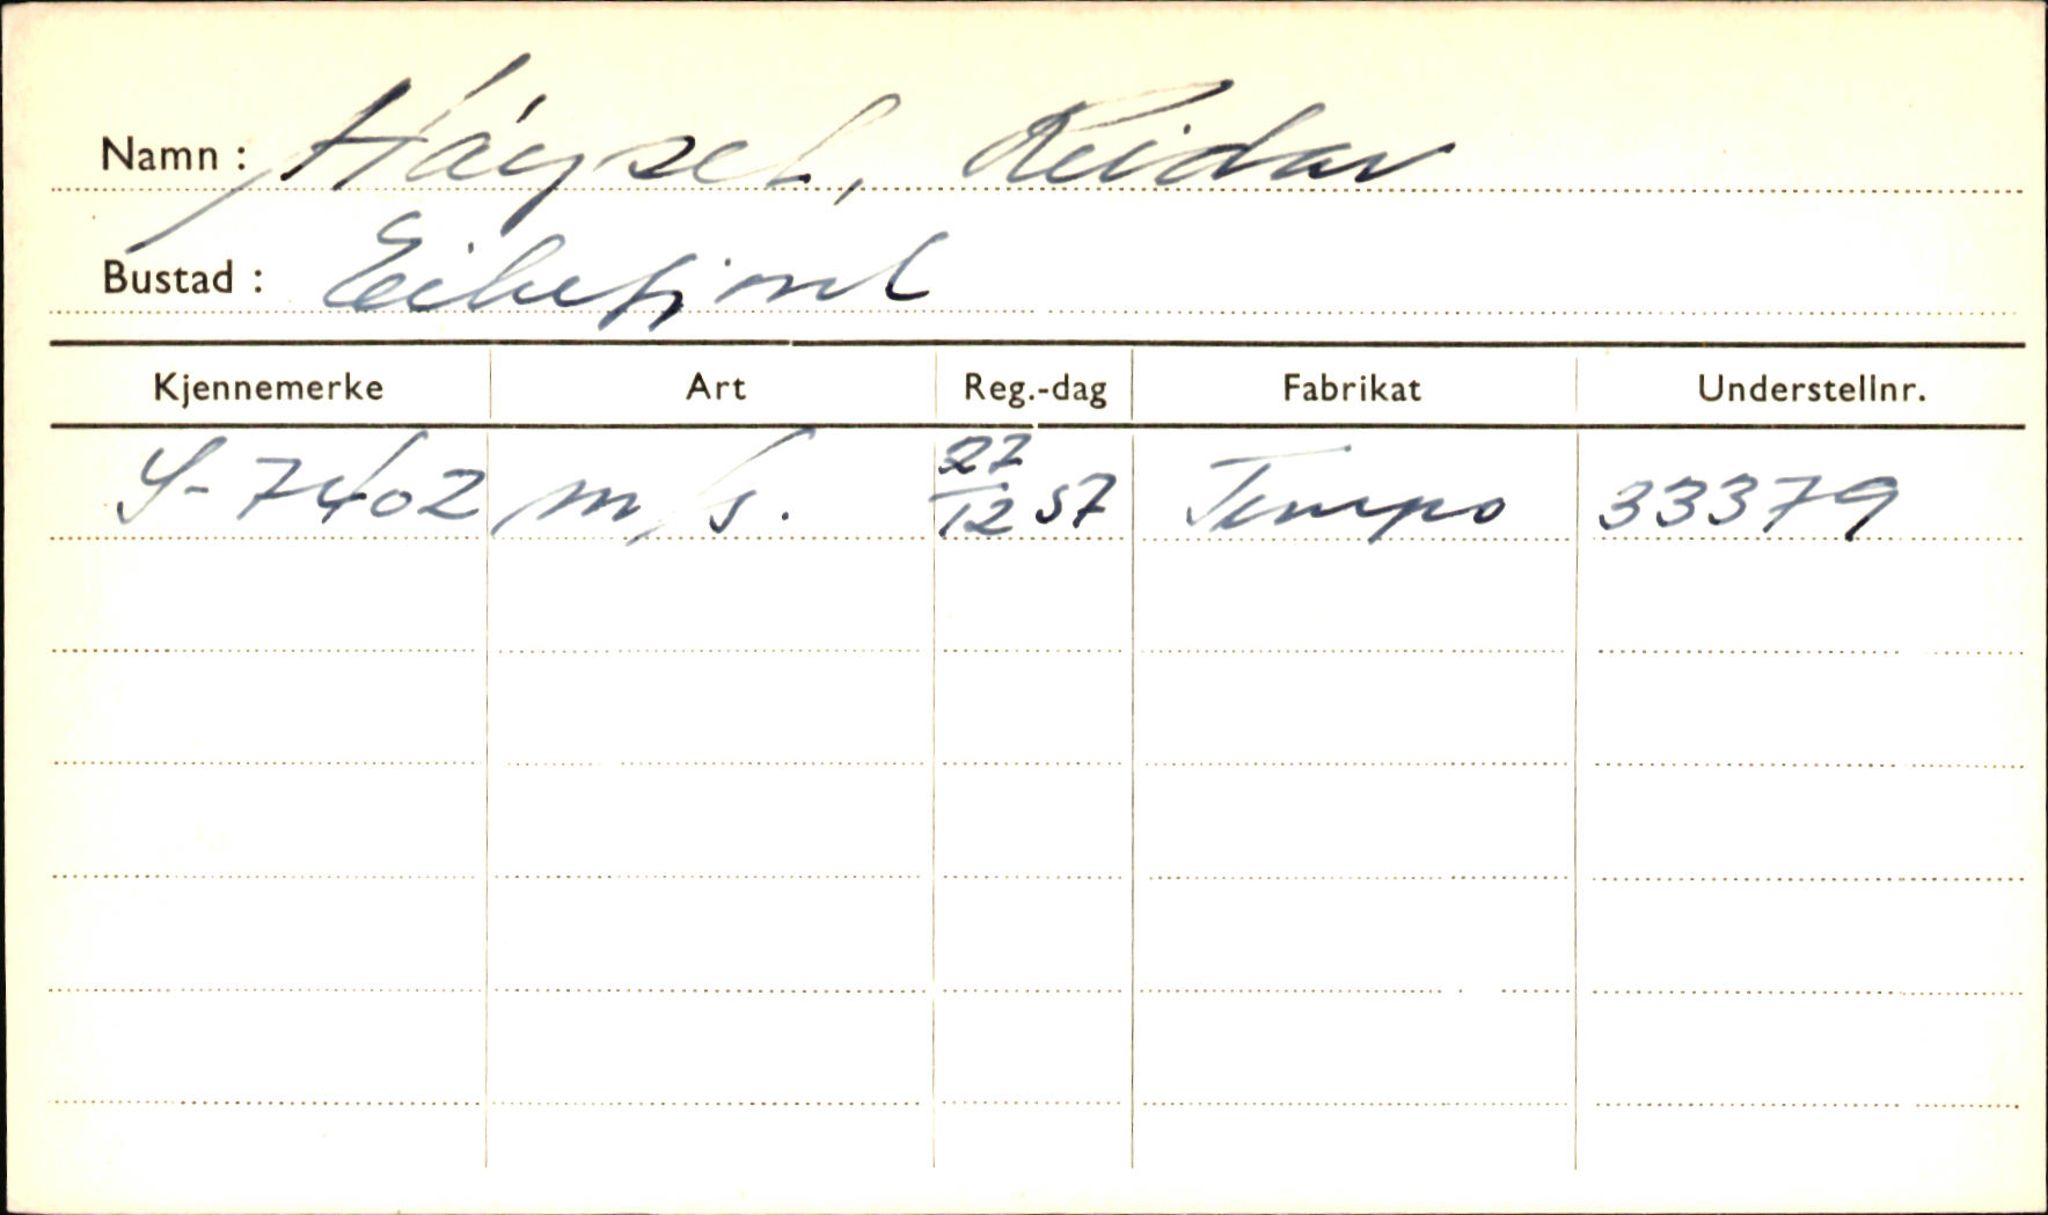 Namn: Høyset, Reidar
Bustad: Eikefjord
Kjennemerke Art Reg.-dag Fabrikat Understellnr.
S-7402 m/s. 27/12 57 Tempo 33379